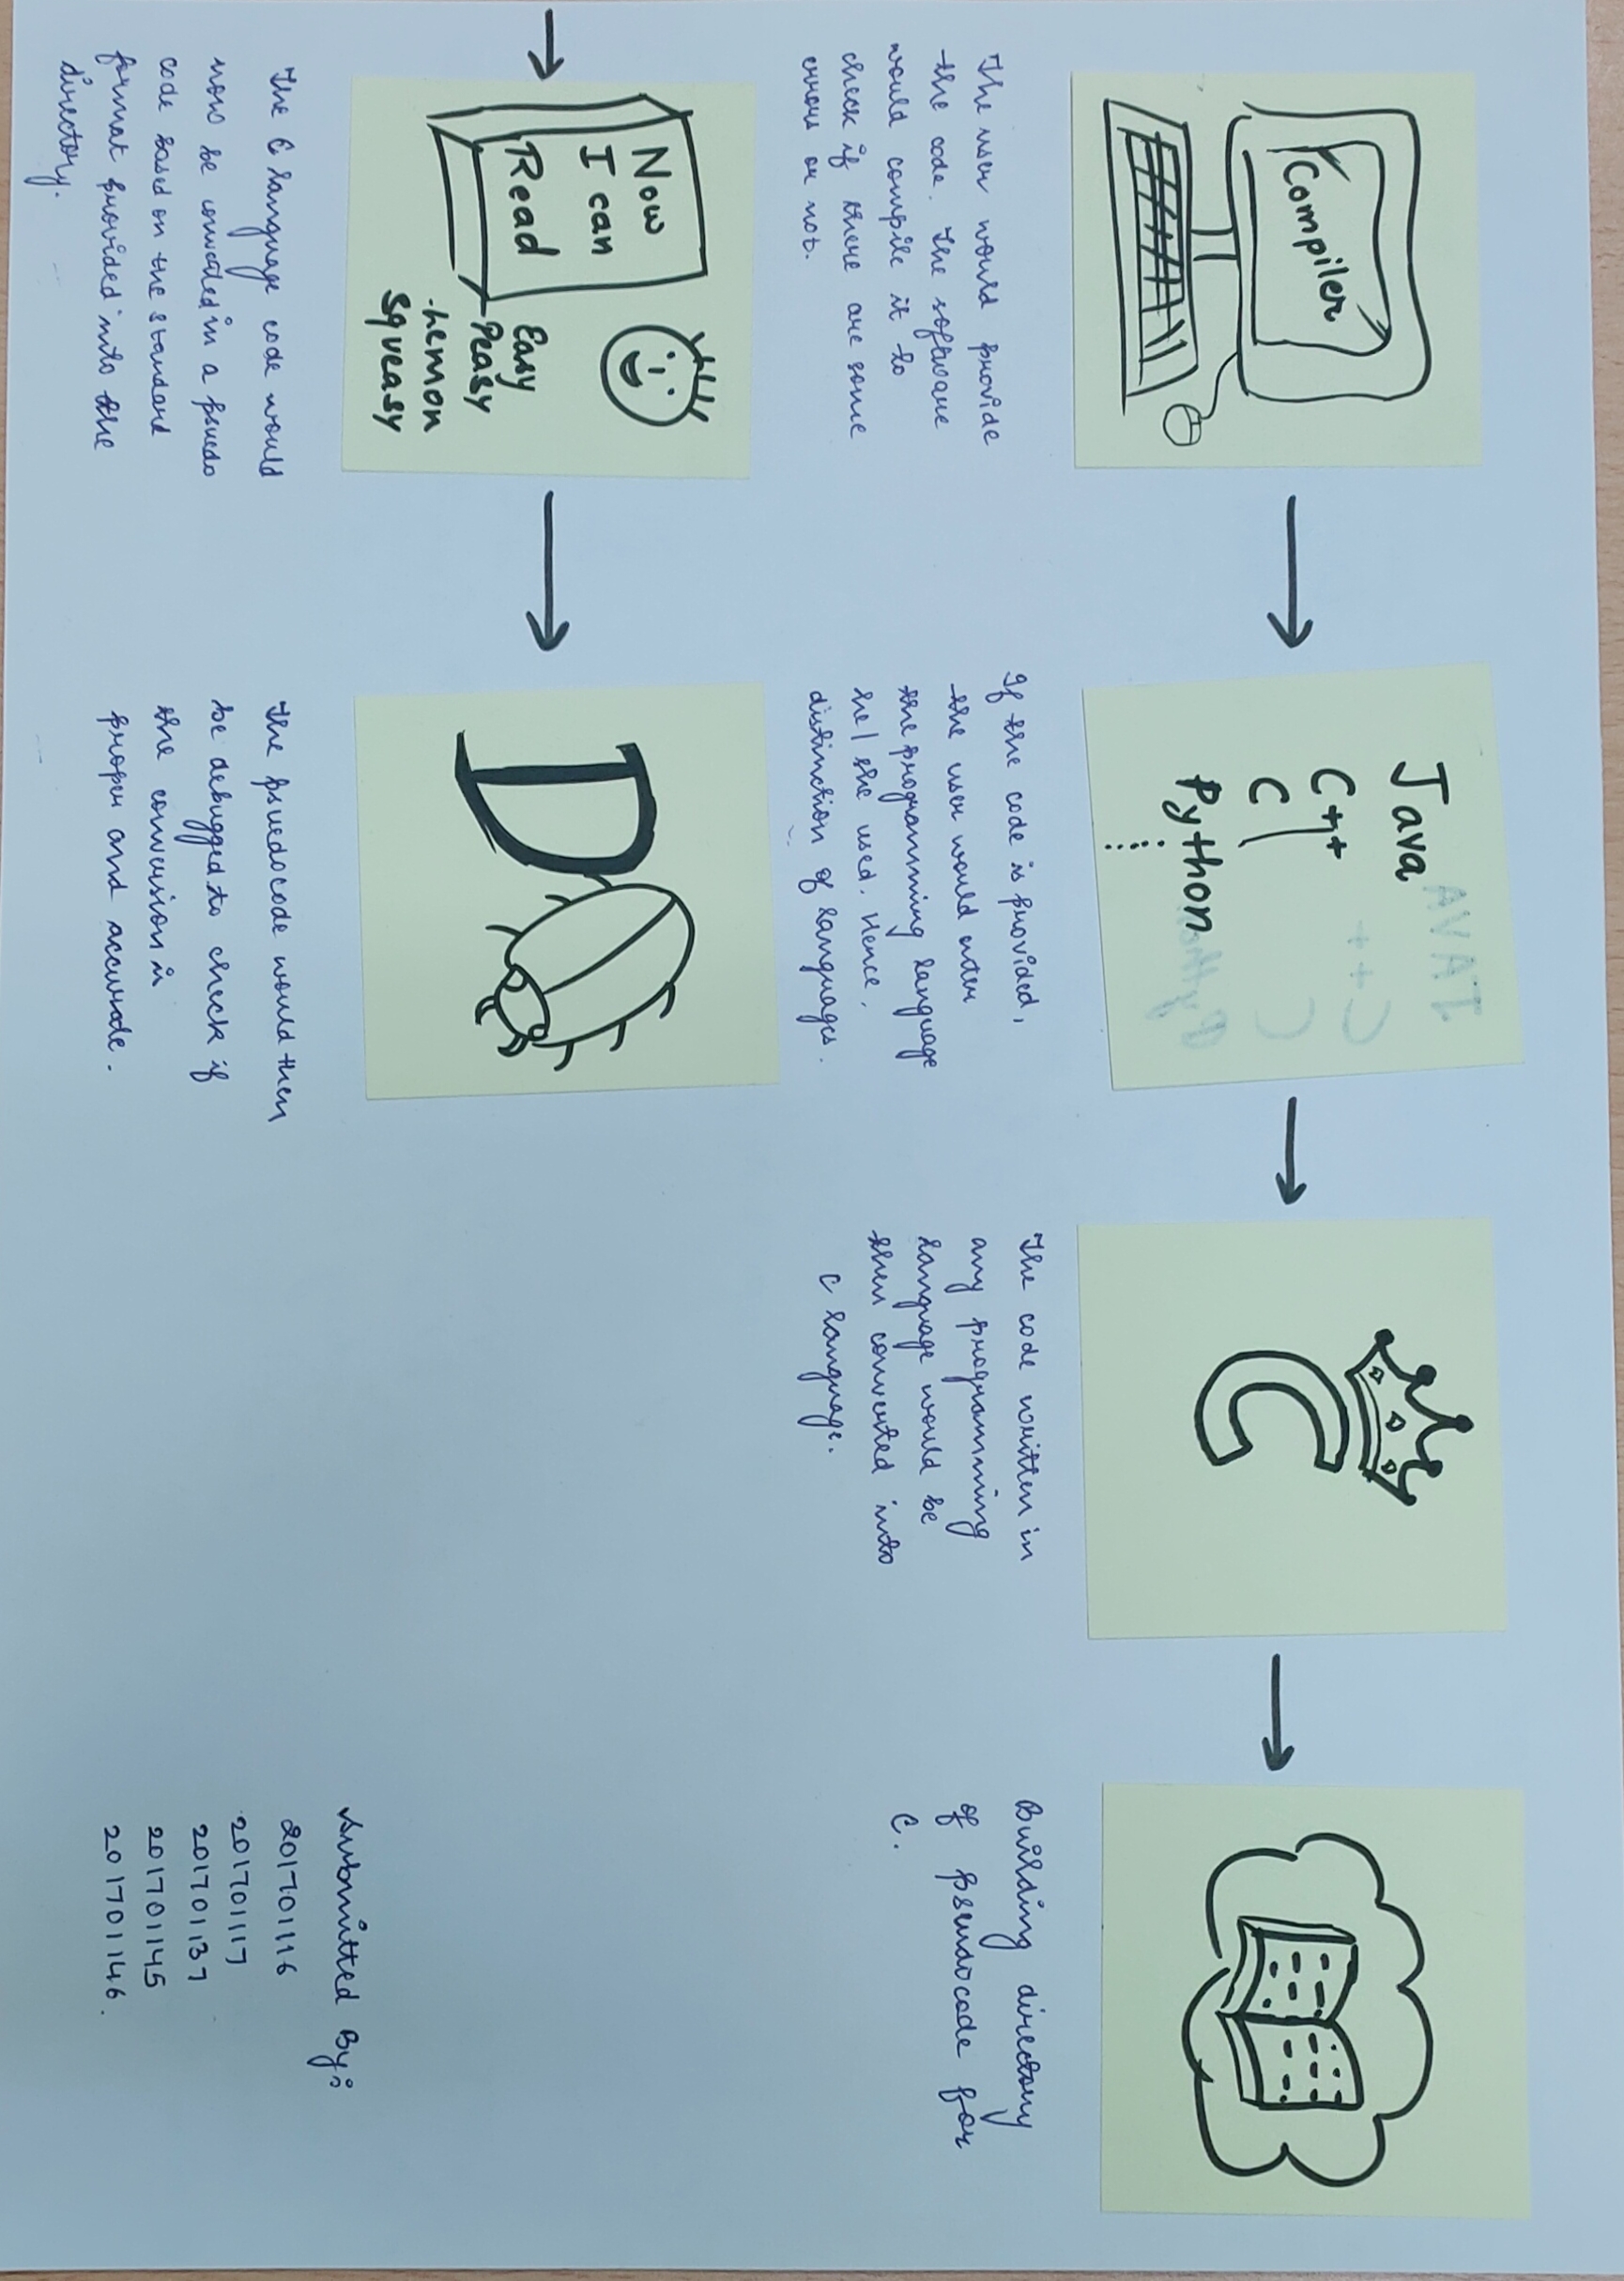 Compiler
The user would provide
the code. The software
would compile it to
check if there are some
errors or not.
Java
C++
C
Python
If the code is provided,
the user would enter
the programming language
he / she used. Hence,
distinction of languages.
C
The code written in
any programming
language would be
then converted into
C language.
Building directory
of pseudocode for
C.
Now
I can
Read
Easy
Peasy
Lemon
Squeasy
The C language code would
now be converted in a psuedo
code based on the standard
format provided into the
directory.
D
The psuedocode would then
be debugged to check if
the conversion is
proper and accurate.
Submitted By:
201701116
201701117
201701137
201701145
201701146.